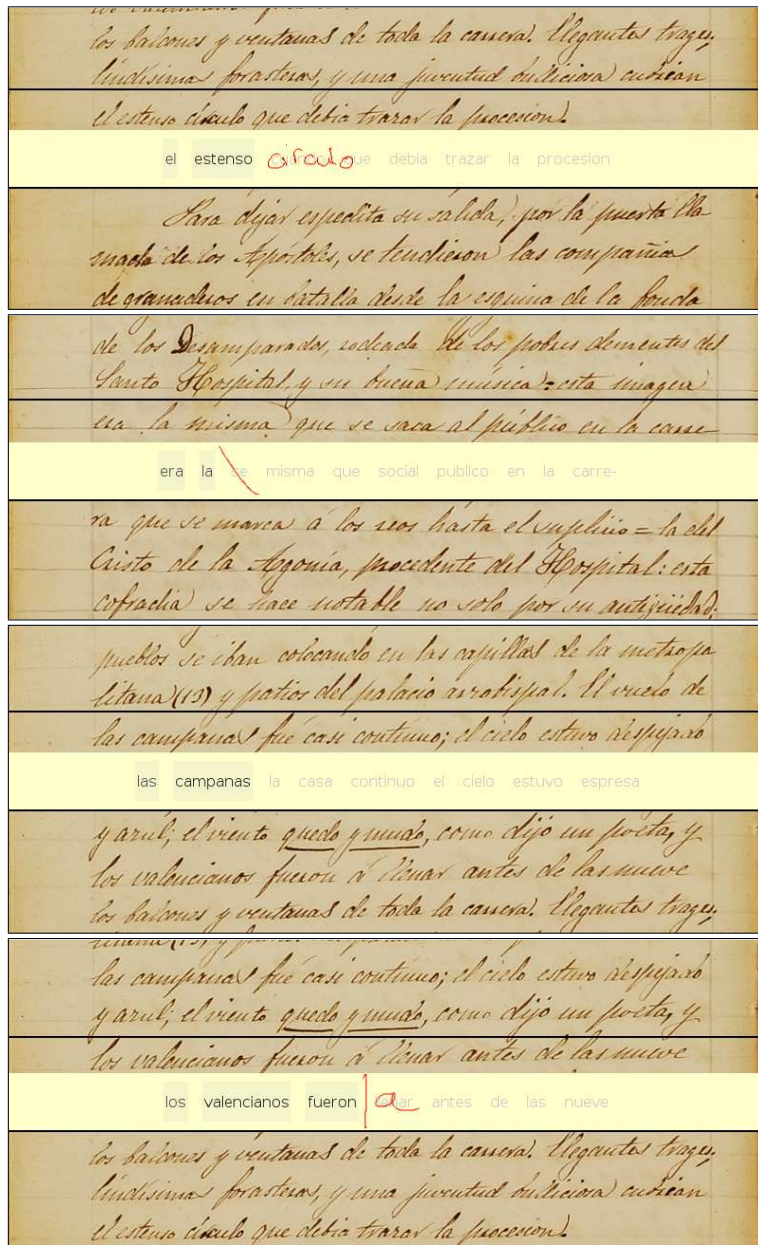 los balcones y ventanas de toda la carrera. Elegantes trages,
lindisimas forasteras, y una juventud buliciosa cubrian
el estenso círculo que debia trazar la procesion.
el estenso circulo que debia trazar la procesion
Para dejar espedita su salida, por la puerta lla-
mada de los Apóstoles, se tendieron las compañias
de granaderos en batalla desde la esquina de la fonda
de los Desamparados, rodeada de los pobres dementes del
Santo Hospital, y su buena música = esta imagen
era la misma que se saca al público en la carre-
era la se misma que social publico en la carre-
ra que se marca á los reos hasta el suplicio = la del
Cristo de la Agonía, procedente del Hospital: esta
cofradia se hace notable no solo por su antigüedad,
pueblos se iban colocando en las capillas de la metropo
litana (13) y patios del palacio arzobispal. El vuelo de
las campanas fué casi continuo; el cielo estuvo despejado
las campanas la casa continuo el cielo estuvo espresa
y azul; el viento quedo y mudo, como dijo un poeta, y
los valencianos fueron á llenar antes de las nueve
los balcones y ventanas de toda la carrera. Elegantes trages,
las campanas fué casi continuo; el cielo estuvo despejado
y azul; el viento quedo y mudo, como dijo un poeta, y
los valencianos fueron á llenar antes de las nueve
los valencianos fueron a llenar antes de las nueve
los balcones y ventanas de toda la carrera. Elegantes trages,
lindisimas forasteras, y una juventud buliciosa cubrian
el estenso círculo que debia trazar la procesion.